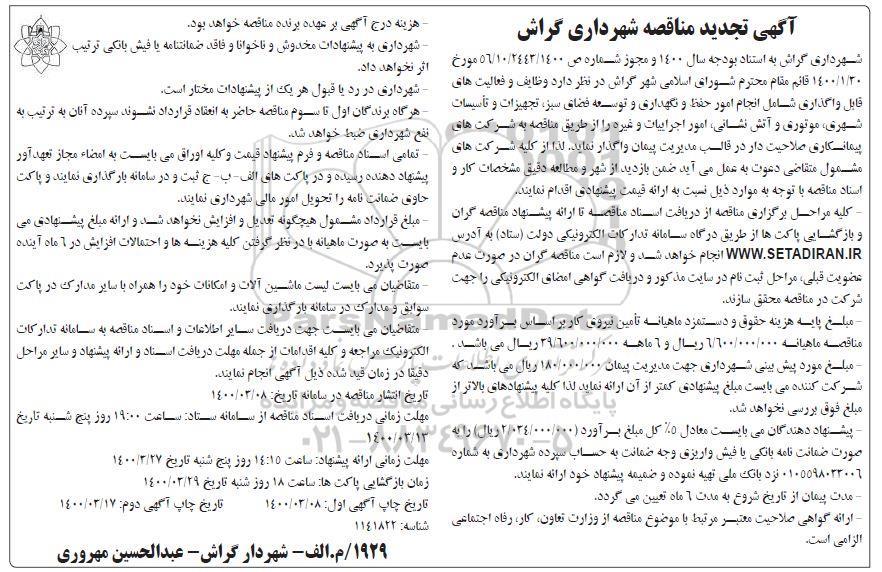 آگهی تجدید مناقصه شهرداری گراش
شهرداری گراش به استناد بودجه سال ۱۴۰۰ و مجوز شماره ص ۵۶/۱۰/۲۴۴۳/۱۴۰۰ مورخ
۱۴۰۰/۱/۳۰ قائم مقام محترم شورای اسلامی شهر گراش در نظر دارد وظایف و فعالیت های
قابل واگذاری شامل انجام امور حفظ و نگهداری و توسعه فضای سبز، تجهیزات و تأسیسات
شهری، موتوری و آتش نشانی، امور اجراییات و غیره را از طریق مناقصه به شرکت های
پیمانکاری صلاحیت دار در قالب مدیریت پیمان واگذار نماید. لذا از کلیه شرکت های
مشمول متقاضی دعوت به عمل می آید ضمن بازدید از شهر و مطالعه دقیق مشخصات کار و
اسناد مناقصه با توجه به موارد ذیل نسبت به ارائه قیمت پیشنهادی اقدام نمایند.
- کلیه مراحل برگزاری مناقصه از دریافت اسناد مناقصه تا ارائه پیشنهاد مناقصه گران
و بازگشایی پاکت ها از طریق درگاه سامانه تدارکات الکترونیکی دولت (ستاد) به آدرس
WWW.SETADIRAN.IR انجام خواهد شد و لازم است مناقصه گران در صورت عدم
عضویت قبلی، مراحل ثبت نام در سایت مذکور و دریافت گواهی امضای الکترونیکی را جهت
شرکت در مناقصه محقق سازند.
- مبلغ پایه هزینه حقوق و دستمزد ماهیانه تأمین نیروی کار بر اساس برآورد مورد
مناقصه ماهیانه ۶/۶۰۰/۰۰۰/۰۰۰ ریال و ۶ ماهه ۳۹/۶۰۰/۰۰۰/۰۰۰ ریال می باشد .
- مبلغ مورد پیش بینی شهرداری جهت مدیریت پیمان ۱۸۰/۰۰۰/۰۰۰ ریال می باشد که
شرکت کننده می بایست مبلغ پیشنهادی کمتر از آن ارائه نماید لذا کلیه پیشنهادهای بالاتر از
مبلغ فوق بررسی نخواهد شد.
- پیشنهاد دهندگان می بایست معادل ۵٪ کل مبلغ برآورد (۲/۰۳۴/۰۰۰/۰۰۰ ریال) را به
صورت ضمانت نامه بانکی یا فیش واریزی وجه ضمانت به حساب سپرده شهرداری به شماره
۰۱۰۵۵۹۸۰۳۳۰۰۶ نزد بانک ملی تهیه نموده و ضمیمه پیشنهاد خود ارائه نمایند.
- مدت پیمان از تاریخ شروع به مدت ۶ ماه تعیین می گردد.
- ارائه گواهی صلاحیت معتبر مرتبط با موضوع مناقصه از وزارت تعاون، کار، رفاه اجتماعی
الزامی است.
- هزینه درج آگهی بر عهده برنده مناقصه خواهد بود.
- شهرداری به پیشنهادات مخدوش و ناخوانا و فاقد ضمانتنامه یا فیش بانکی ترتیب
اثر نخواهد داد.
- شهرداری در رد یا قبول هر یک از پیشنهادات مختار است.
- هرگاه برندگان اول تا سوم مناقصه حاضر به انعقاد قرارداد نشوند سپرده آنان به ترتیب به
نفع شهرداری ضبط خواهد شد.
- تمامی اسناد مناقصه و فرم پیشنهاد قیمت و کلیه اوراق می بایست به امضاء مجاز تعهدآور
پیشنهاد دهنده رسیده و در پاکت های الف- ب- ج ثبت و در سامانه بارگذاری نمایند و پاکت
حاوی ضمانت نامه را تحویل امور مالی شهرداری نمایند.
- مبلغ قرارداد مشمول هیچگونه تعدیل و افزایش نخواهد شد و ارائه مبلغ پیشنهادی می
بایست به صورت ماهیانه با در نظر گرفتن کلیه هزینه ها و احتمالات افزایش در ۶ ماه آینده
صورت پذیرد.
- متقاضیان می بایست لیست ماشین آلات و امکانات خود را همراه با سایر مدارک در پاکت
سوابق و مدارک در سامانه بارگذاری نمایند.
- متقاضیان می بایست جهت دریافت سایر اطلاعات و اسناد مناقصه به سامانه تدارکات
الکترونیک مراجعه و کلیه اقدامات از جمله مهلت دریافت اسناد و ارائه پیشنهاد و سایر مراحل
دقیقا در زمان قید شده ذیل آگهی انجام نمایند.
تاریخ انتشار مناقصه در سامانه تاریخ: ۱۴۰۰/۰۳/۰۸
مهلت زمانی دریافت اسناد مناقصه از سامانه ستاد: ساعت ۱۹:۰۰ روز پنج شنبه تاریخ
۱۴۰۰/۰۳/۱۳
مهلت زمانی ارائه پیشنهاد: ساعت ۱۴:۱۵ روز پنج شنبه تاریخ ۱۴۰۰/۳/۲۷
زمان بازگشایی پاکت ها: ساعت ۱۸ روز شنبه تاریخ ۱۴۰۰/۰۳/۲۹
تاریخ چاپ آگهی اول: ۱۴۰۰/۰۳/۰۸ تاریخ چاپ آگهی دوم: ۱۴۰۰/۰۳/۱۷
شناسه: ۱۱۴۱۸۲۲
۱۹۲۹/م.الف- شهردار گراش- عبدالحسین مهروری
ParsNamadData
پایگاه اطلاع رسانی مناقصه و مزایده
۰۲۱-۸۸۳۴۹۶۷۰-۵